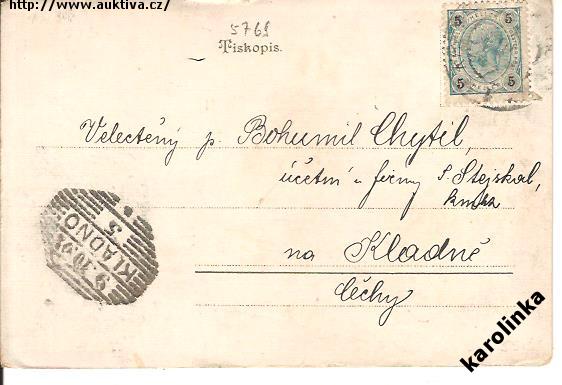 http://www.auktiva.cz/
5769
Tiskopis.
5 5
5 5
Velectěný p. Bohumil Chytil,
účetní u firmy S. Stejskal,
na Kladně
Čechy
KLADNO
5
karolinka